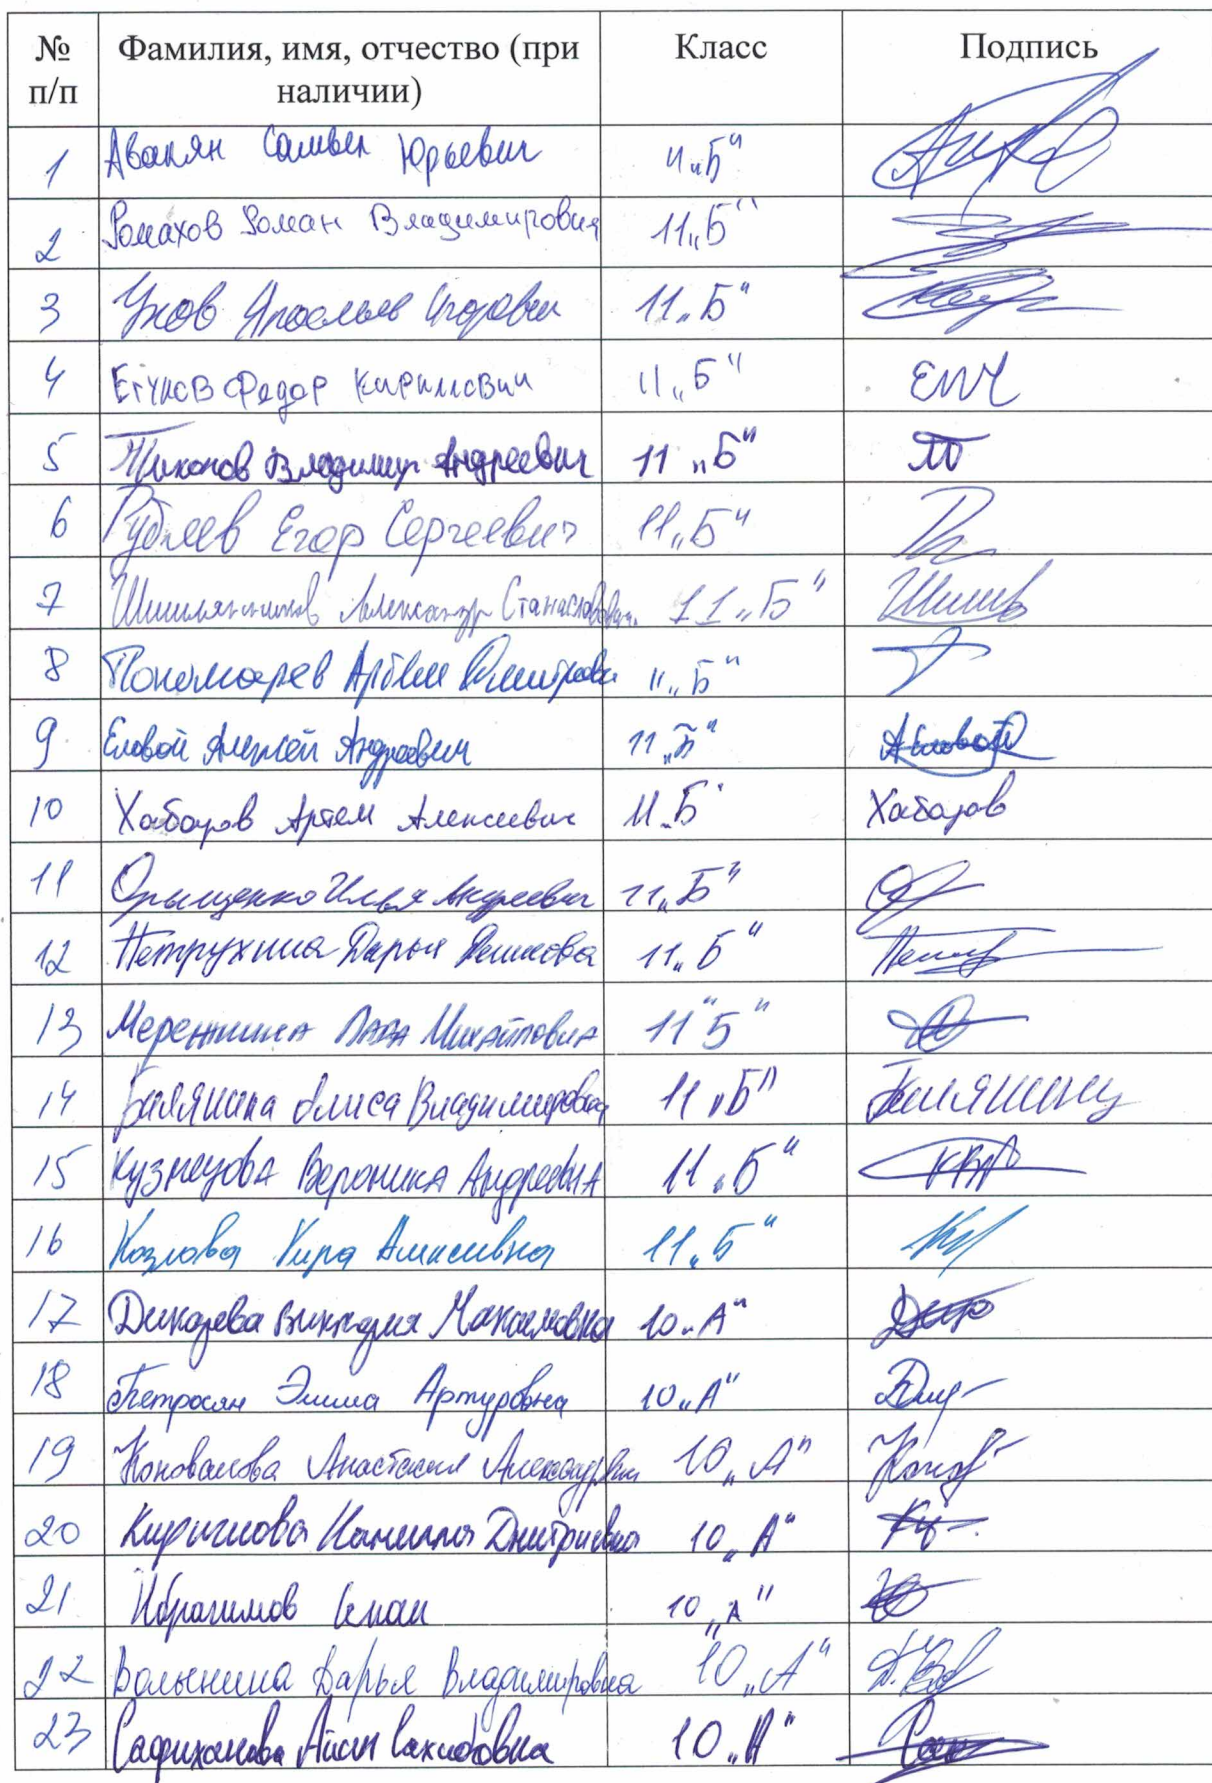 № п/п Фамилия, имя, отчество (при наличии) Класс Подпись
1 Авакян Самвел Юрьевич 11„Б“
2 Ромахов Роман Владимирович 11„Б“
3 Ярослав Игоревич 11„Б“
4 Федор Кириллович 11„Б“
5 Тихонов Владимир Андреевич 11„Б“
6 Рублев Егор Сергеевич 11„Б“
7 Александр Станиславович 11„Б“
8 Пономарев Артём Дмитриевич 11„Б“
9 Еловой Алексей Андреевич 11„Б“
10 Хабаров Артем Алексеевич 11„Б“ Хабаров
11 Орыщенко Илья Андреевич 11„Б“
12 Петрухина Дарья Денисовна 11„Б“
13 Мережкина Михайловна 11"Б"
14 Балякина Алиса Владимировна 11„Б“
15 Кузнецова Вероника Андреевна 11„Б“
16 Козлова Кира Алексеевна 11„Б“
17 Дикарева Виктория Максимовна 10„А“
18 Петросян Эмма Артуровна 10„А“
19 Коновалова Анастасия 10„А“
20 Кириллова Камилла Дмитриевна 10„А“
21 Ибрагимов 10„А“
22 Волынина Дарья Владимировна 10„А“
23 Сафиханова 10„А“